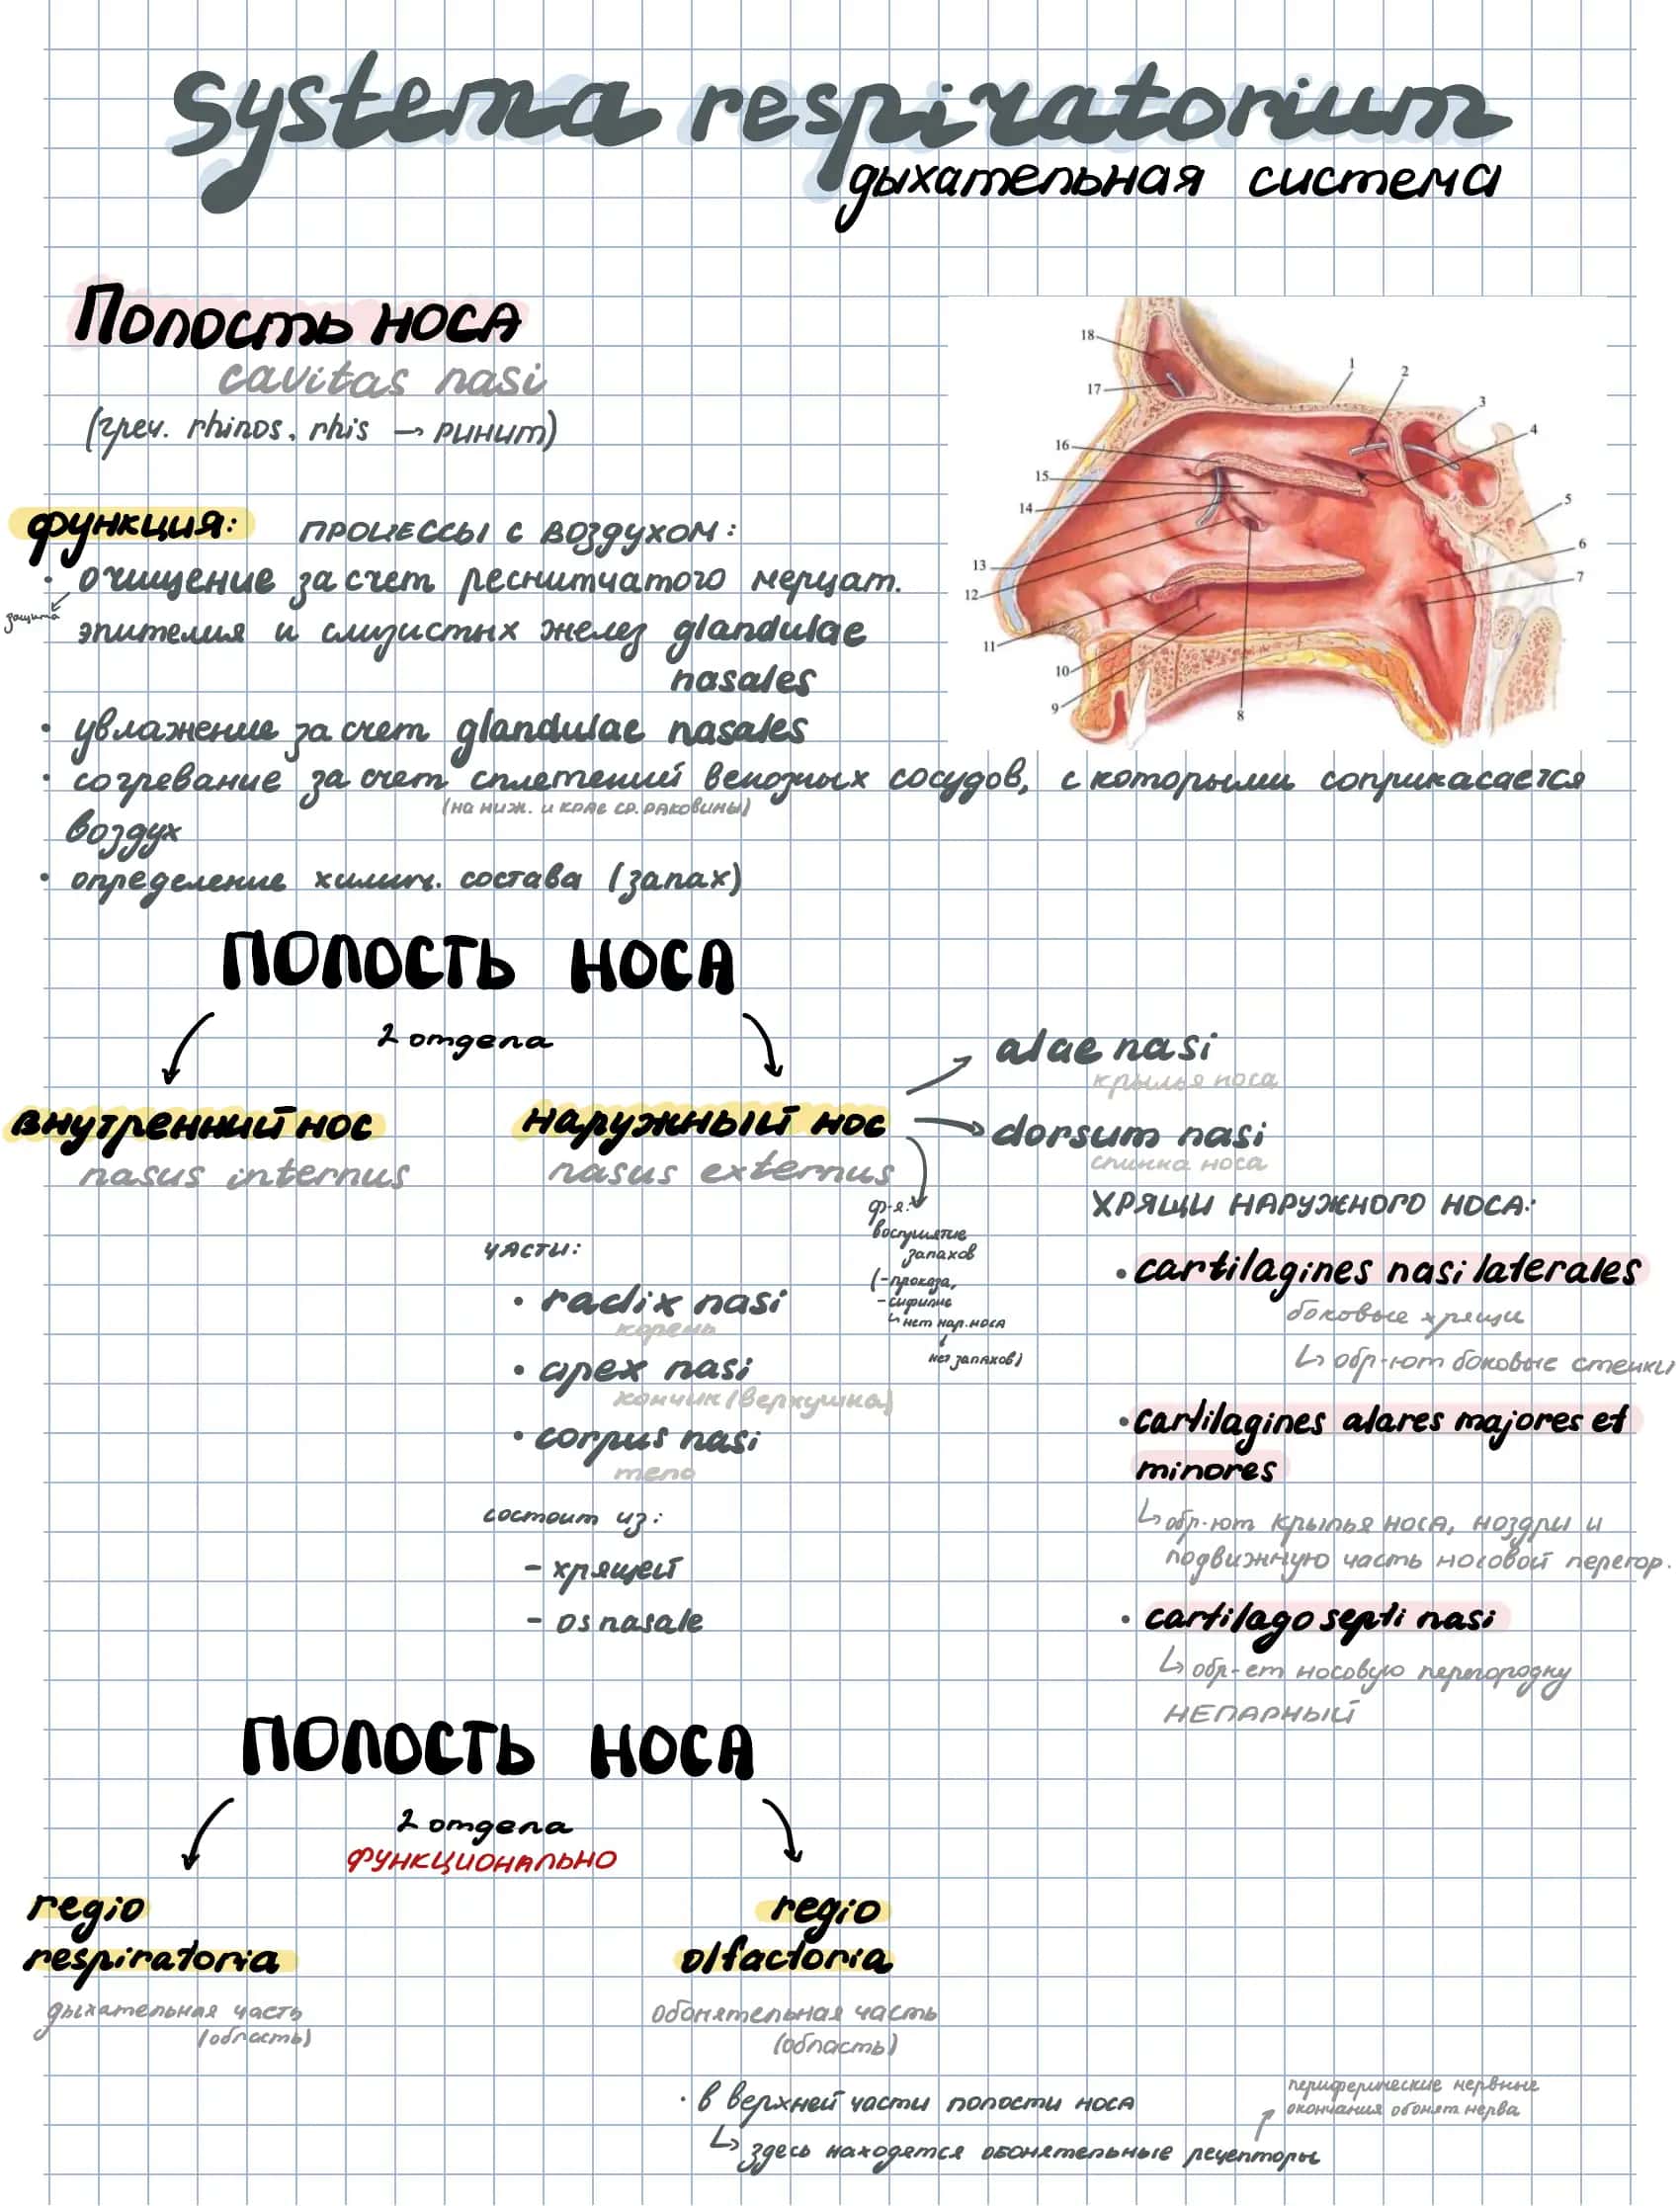 systema respiratorium
дыхательная система
Полость носа
cavitas nasi
(греч. rhinos, rhis → ринит)
функция: процессы с воздухом:
• очищение за счет реснитчатого мерцат.
защита
эпителия и слизистых желез glandulae
nasales
• увлажение за счет glandulae nasales
• согревание за счет сплетений венозных сосудов, с которыми соприкасается
(на ниж. и крае ср. раковины)
воздух
• определение химич. состава (запах)
18
17
16
15
14
13
12
11
10
9
8
1
2
3
4
5
6
7
ПОЛОСТЬ НОСА
2 отдела
внутренний нос
nasus internus
наружный нос
nasus externus
alae nasi
крылья носа
dorsum nasi
спинка носа
ф-я:
восприятие
запахов
(- проказа,
- сифилис
↳ нет нар. носа
↓
нет запахов)
части:
• radix nasi
корень
• apex nasi
кончик (верхушка)
• corpus nasi
тело
состоит из:
- хрящей
- os nasale
ХРЯЩИ НАРУЖНОГО НОСА:
• cartilagines nasi laterales
боковые хрящи
↳ обр-ют боковые стенки
• cartilagines alares majores et
minores
↳ обр-ют крылья носа, ноздри и
подвижную часть носовой перегор.
• cartilago septi nasi
↳ обр-ет носовую перегородку
НЕПАРНЫЙ
ПОЛОСТЬ НОСА
2 отдела
ФУНКЦИОНАЛЬНО
regio
respiratoria
дыхательная часть
(область)
regio
olfactoria
обонятельная часть
(область)
• в верхней части полости носа
↳ здесь находятся обонятельные рецепторы
периферические нервные
окончания обонят нерва